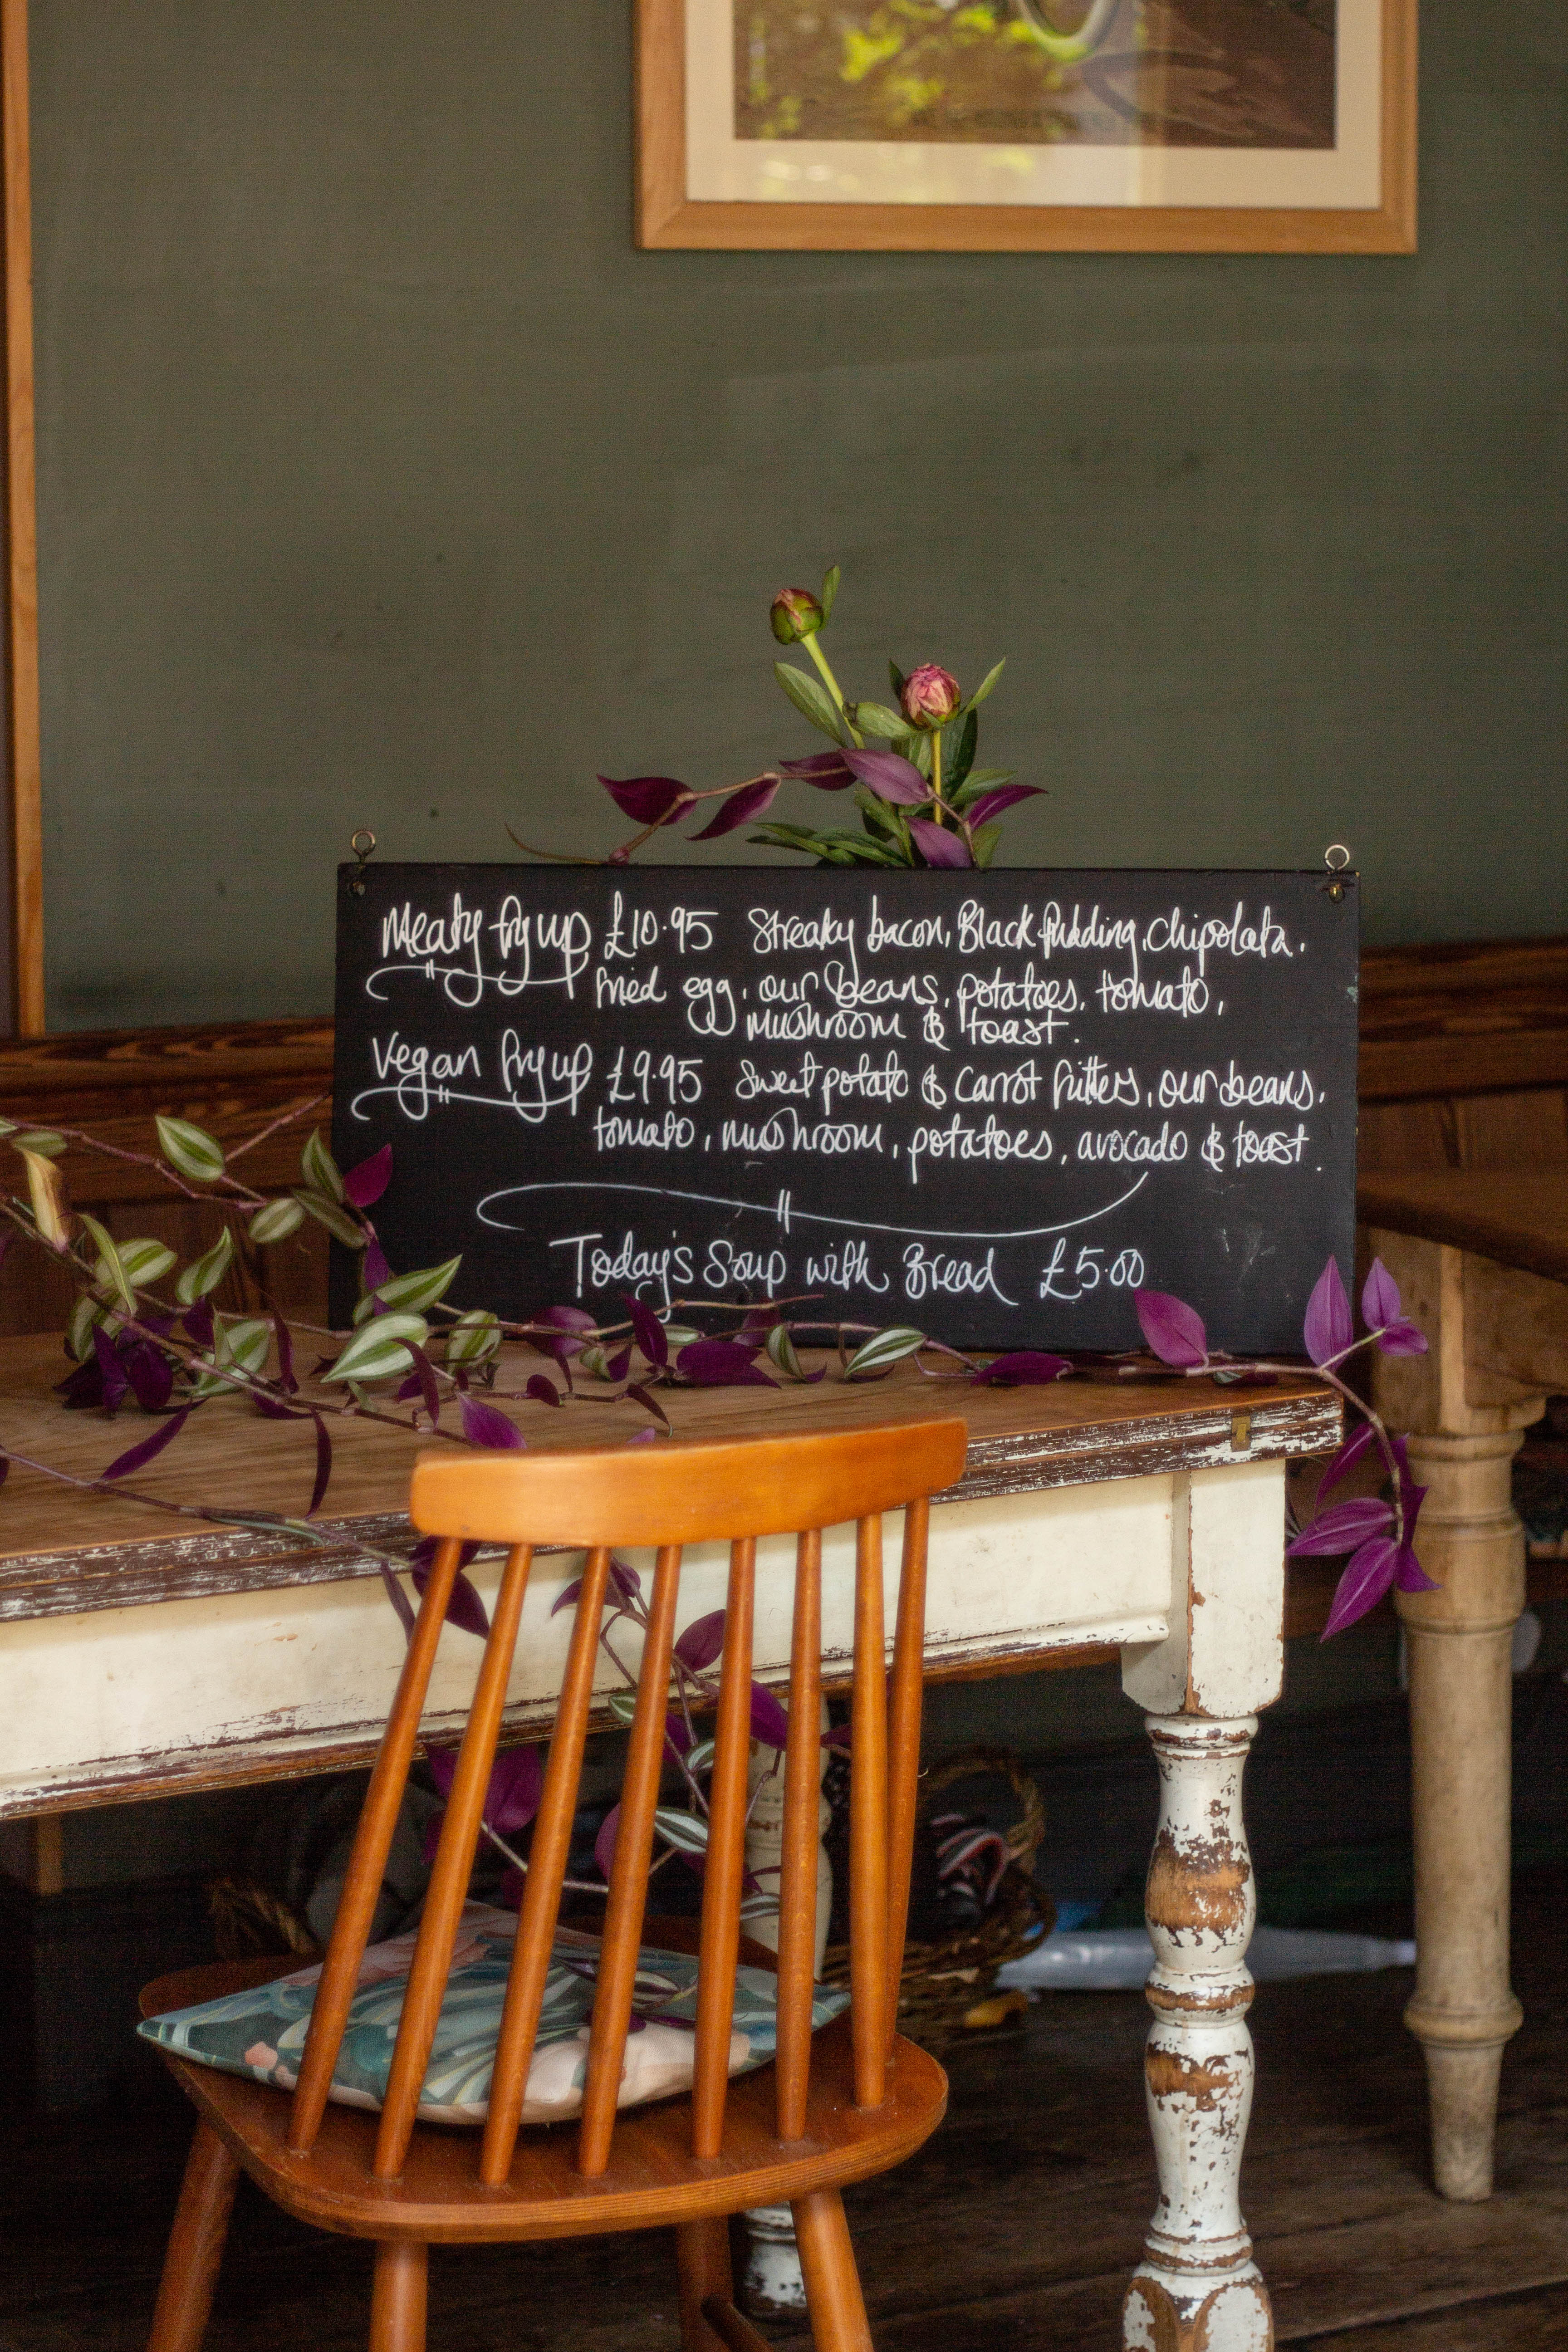 Meaty fry up £10.95 Streaky bacon, Black Pudding, Chipolata,
fried egg, our beans, potatoes, tomato,
mushroom & toast.
Vegan fry up £9.95 Sweet potato & Carrot fritters, our beans,
tomato, mushroom, potatoes, avocado & toast.
Today's Soup with Bread £5.00